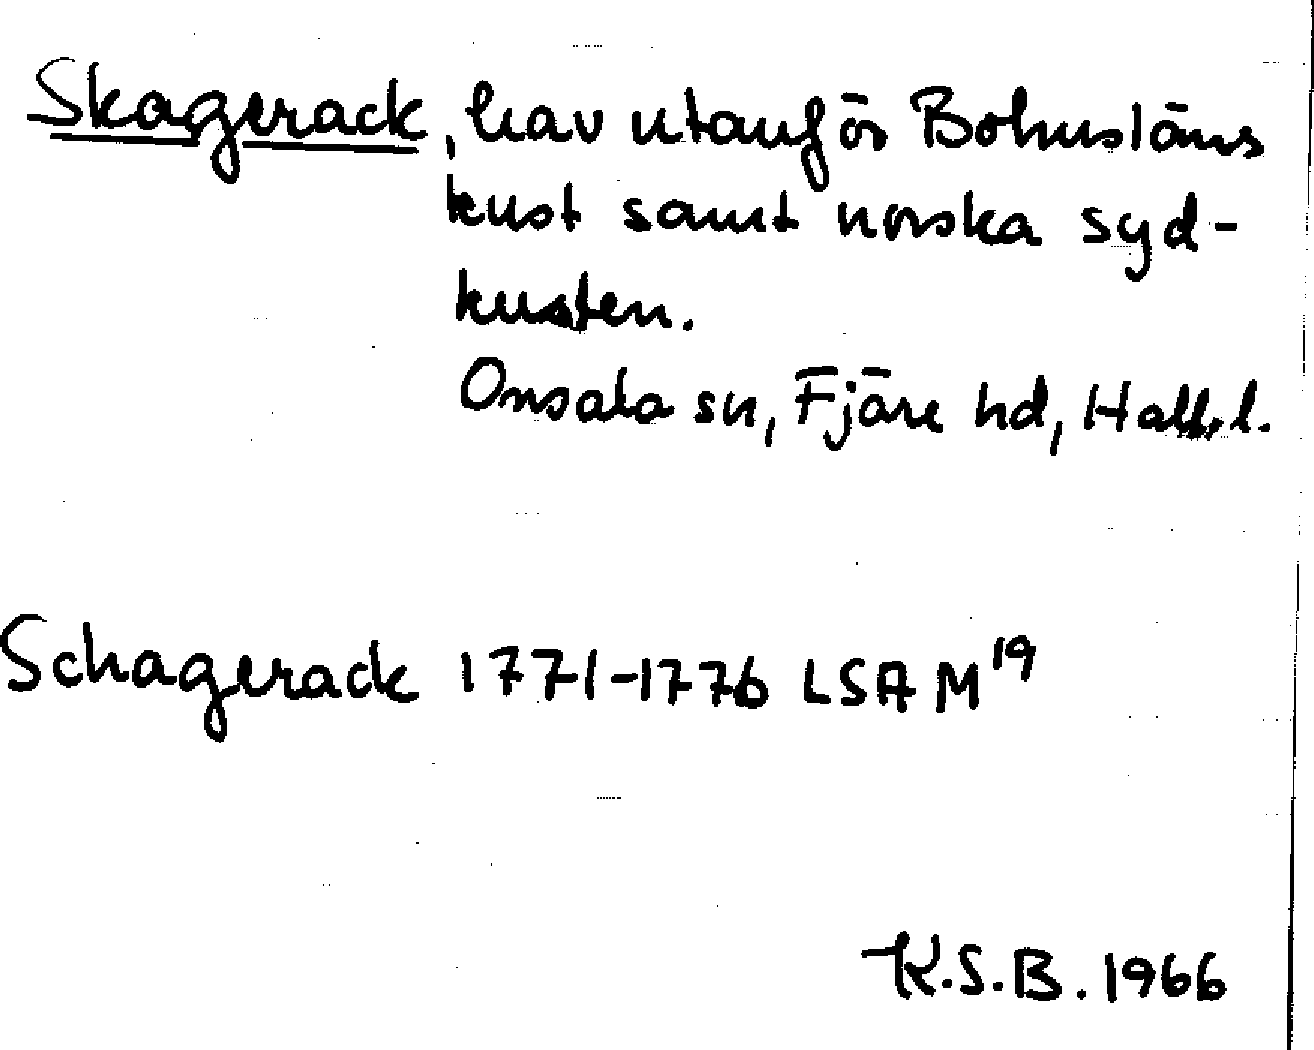 Skagerack, hav utanför Bohusläns
kust samt norska syd-
kusten.
Onsala sn, Fjäre hd, Hall. l.
Schagerack 1771-1776 LSA M¹⁹
K.S.B. 1966